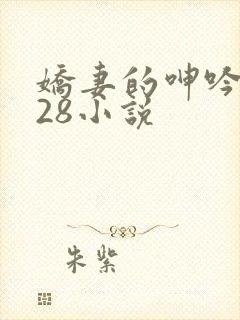 嬌妻的呻吟
28小說
朱紫